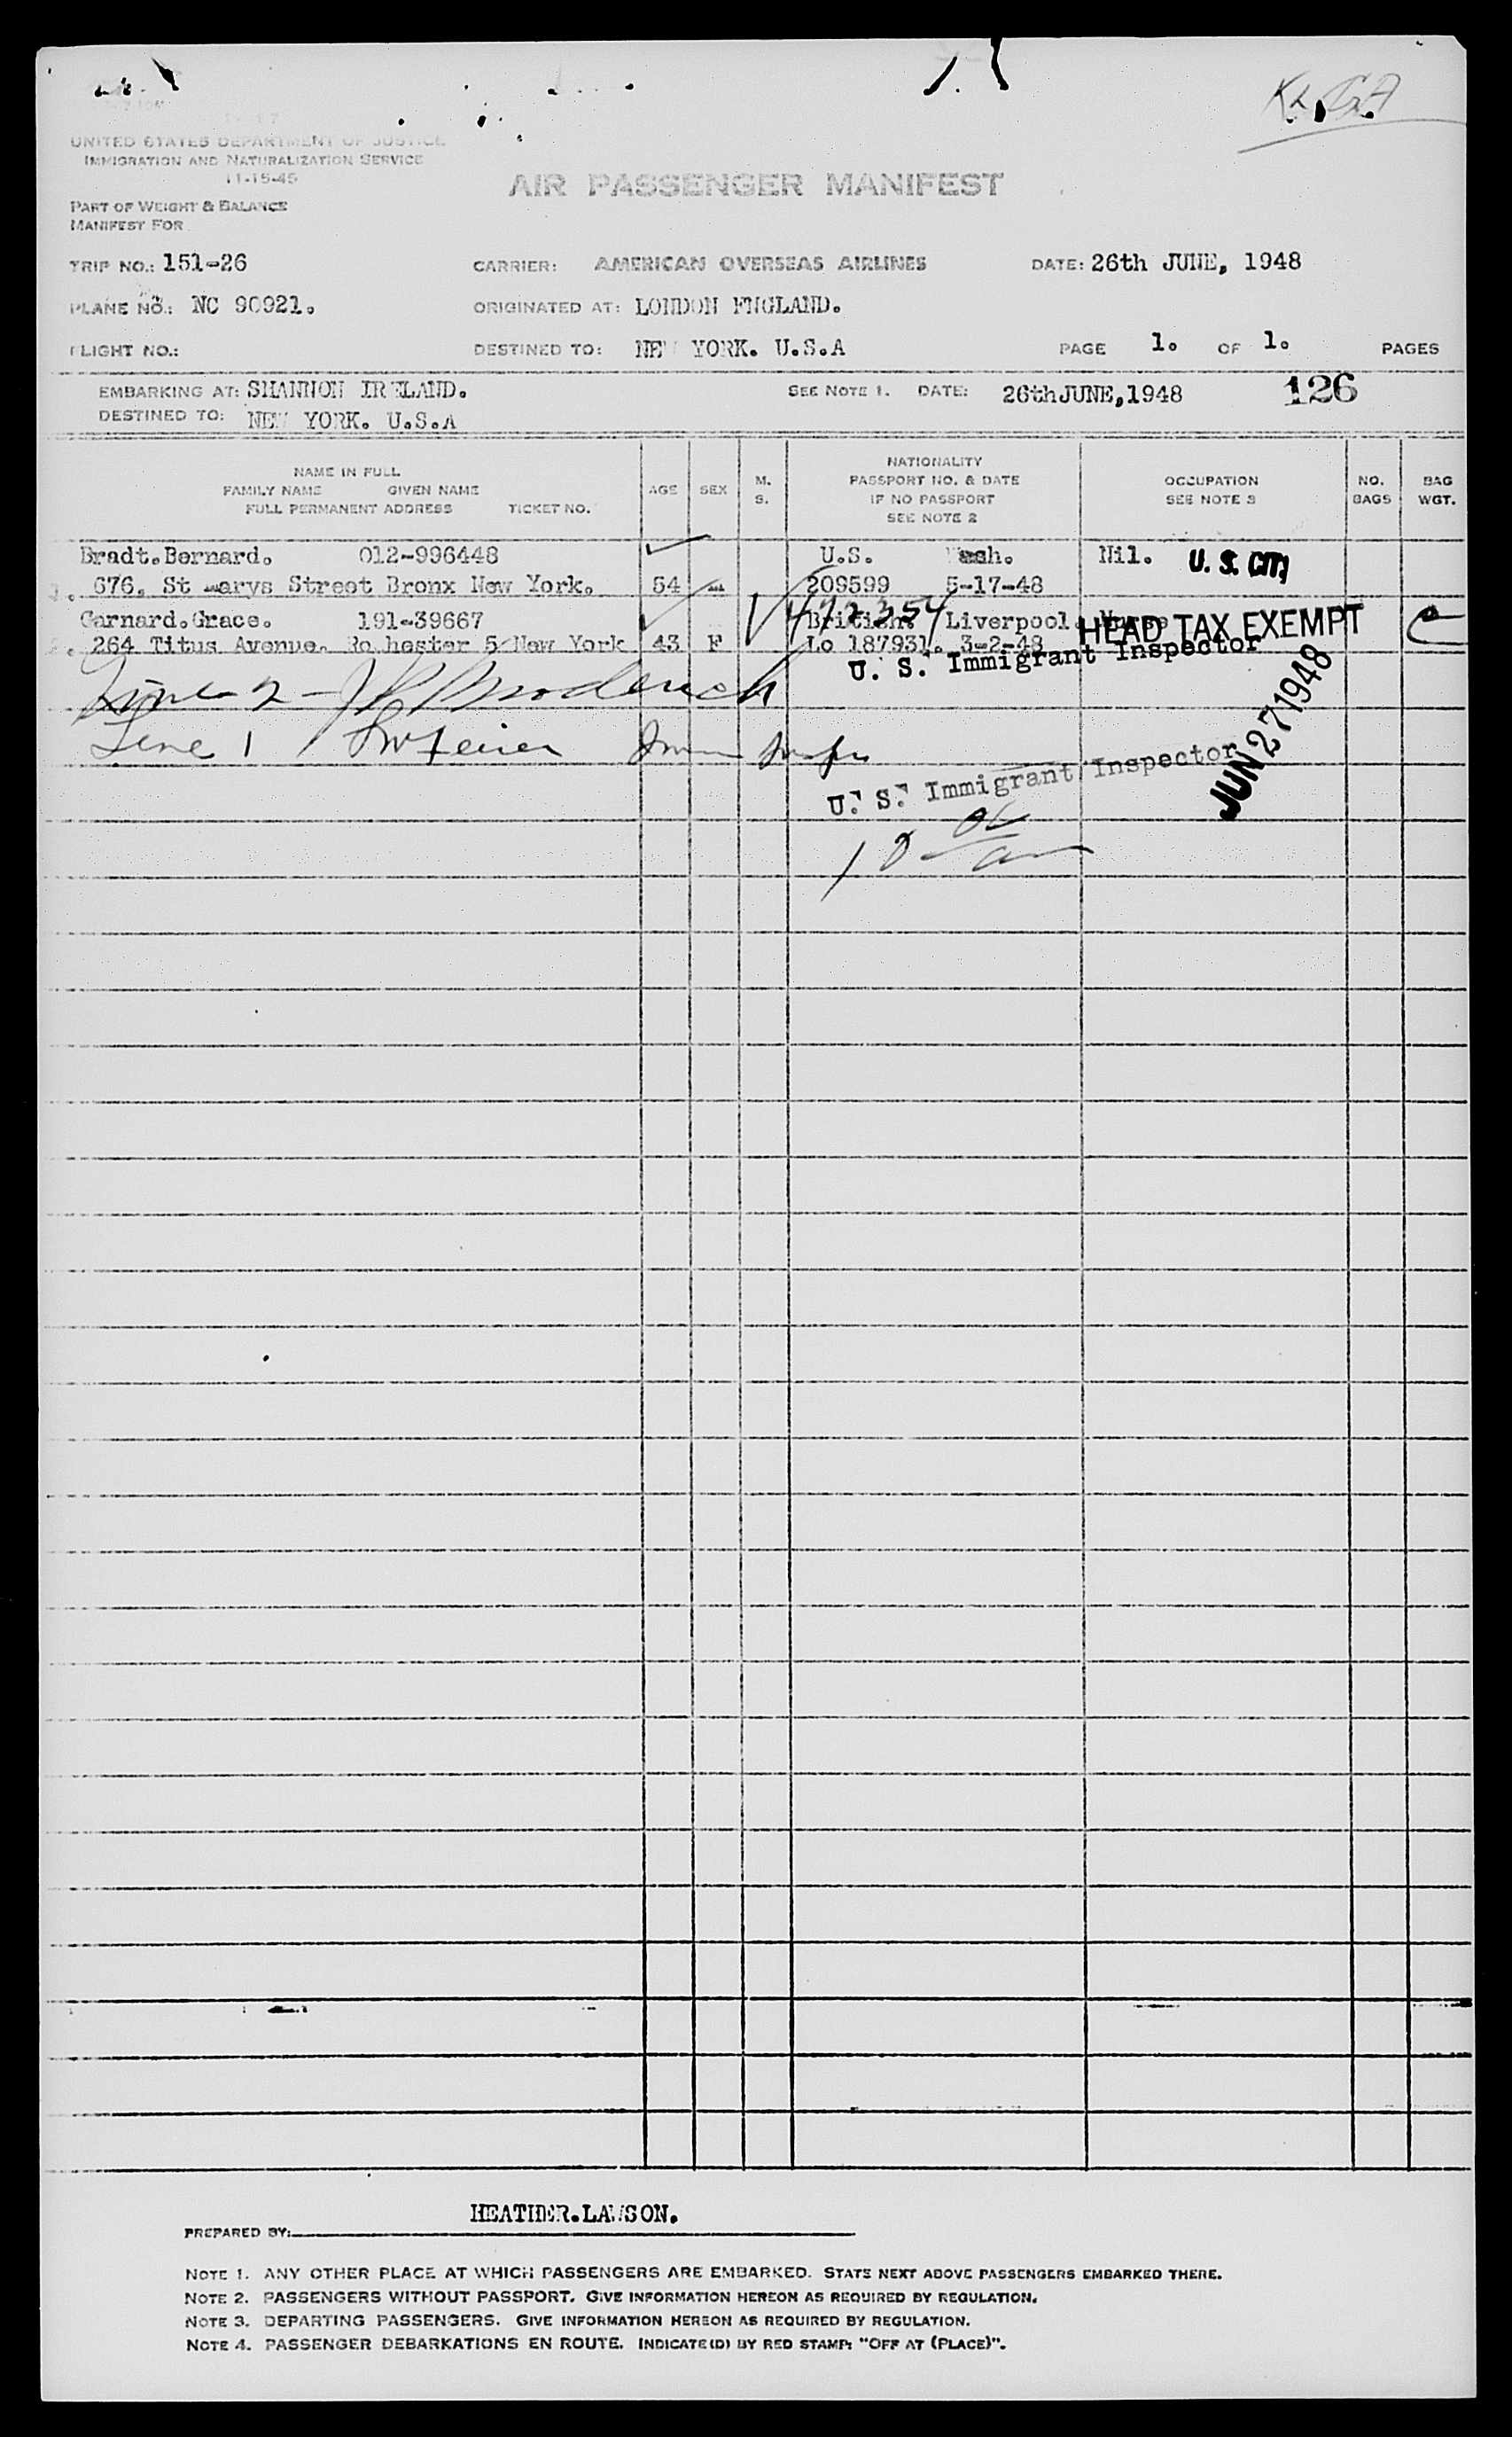 UNITED STATES DEPARTMENT OF JUSTICE
IMMIGRATION AND NATURALIZATION SERVICE
11-15-45
AIR PASSENGER MANIFEST
PART OF WEIGHT & BALANCE
MANIFEST FOR
TRIP NO.: 151-26 CARRIER: AMERICAN OVERSEAS AIRLINES DATE: 26th JUNE, 1948
PLANE NO.: NC 90921. ORIGINATED AT: LONDON ENGLAND.
FLIGHT NO.: DESTINED TO: NEW YORK. U.S.A PAGE 1. OF 1. PAGES
EMBARKING AT: SHANNON IRELAND. SEE NOTE 1. DATE: 26thJUNE,1948 126
DESTINED TO: NEW YORK. U.S.A
NAME IN FULL
FAMILY NAME GIVEN NAME
FULL PERMANENT ADDRESS TICKET NO.
AGE SEX M. S.
NATIONALITY
PASSPORT NO. & DATE
IF NO PASSPORT
SEE NOTE 2
OCCUPATION
SEE NOTE 3
NO. BAGS
BAG WGT.
Bradt.Bernard. 012-996448 U.S. Wash. Nil. U. S. CIT.
1. 676. St Marys Street Bronx New York. 54 M 209599 5-17-48
Garnard.Grace. 191-39667 British. Liverpool. HEAD TAX EXEMPT
472354
2. 264 Titus Avenue. Rochester 5 New York 43 F Lo 187931. 3-2-48
U. S. Immigrant Inspector
Line 2 - J P Broderick
Line 1
JUN 27 1948
U. S. Immigrant Inspector
PREPARED BY: HEATHER.LAWSON.
NOTE 1. ANY OTHER PLACE AT WHICH PASSENGERS ARE EMBARKED. STATE NEXT ABOVE PASSENGERS EMBARKED THERE.
NOTE 2. PASSENGERS WITHOUT PASSPORT. GIVE INFORMATION HEREON AS REQUIRED BY REGULATION.
NOTE 3. DEPARTING PASSENGERS. GIVE INFORMATION HEREON AS REQUIRED BY REGULATION.
NOTE 4. PASSENGER DEBARKATIONS EN ROUTE. INDICATE(D) BY RED STAMP: "OFF AT (PLACE)".